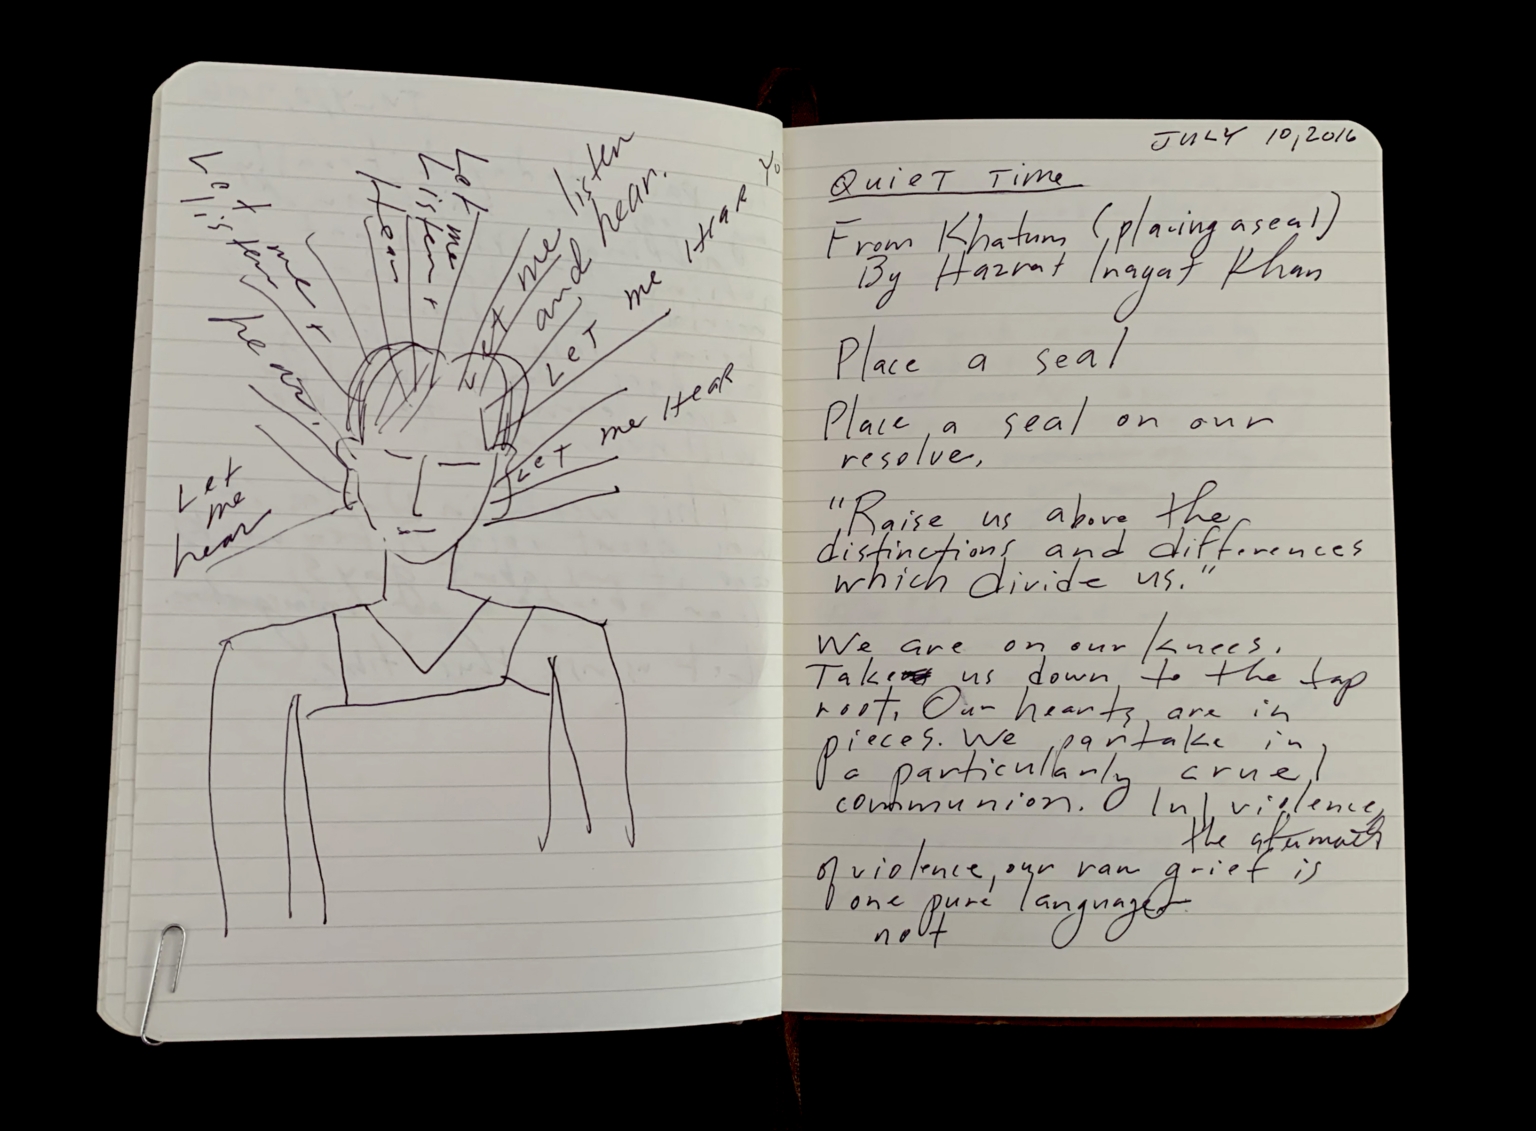 Let me +
listen
hear.
Let me
Listen +
Hear
Let me listen
and hear.
Let me Hear Yo
Let me Hear
Let
me
hear
JULY 10, 2016
QUIET TIME
From Khatum (placing a seal)
By Hazrat Inayat Khan
Place a seal
Place a seal on our
resolve.
"Raise us above the
distinctions and differences
which divide us."
We are on our knees.
Take us down to the tap
root. Our hearts are in
pieces. We partake in
a particularly cruel
communion. In violence,
the aftermath
of violence, our raw grief is
one pure language
not